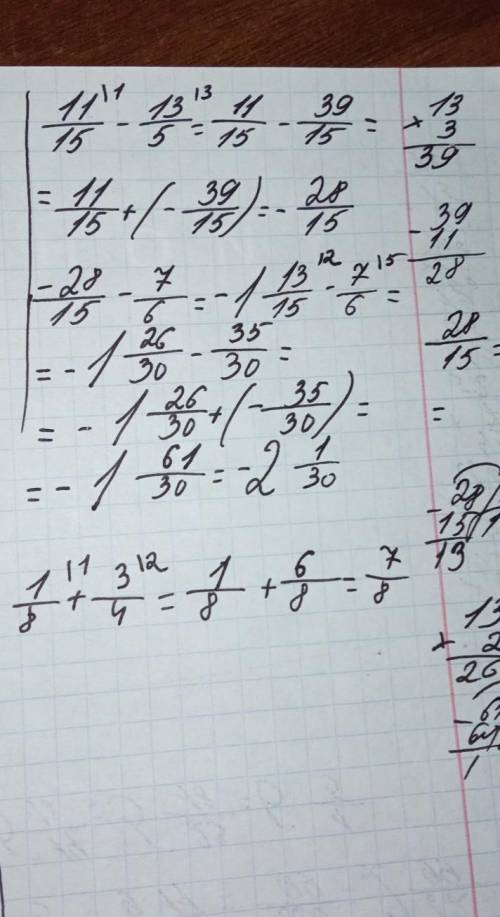 11/15 \1 - 13/5 \3 = 11/15 - 39/15 =
= 11/15 + (- 39/15) = - 28/15
-28/15 - 7/6 = -1 13/15 \2 - 7/6 \5 =
= -1 26/30 - 35/30 =
= -1 26/30 + (- 35/30) =
= -1 61/30 = -2 1/30
1/8 \1 + 3/4 \2 = 1/8 + 6/8 = 7/8
13
× 3
39
- 39
11
28
28/15 =
=
- 28
15 1
13
13
× 2
26